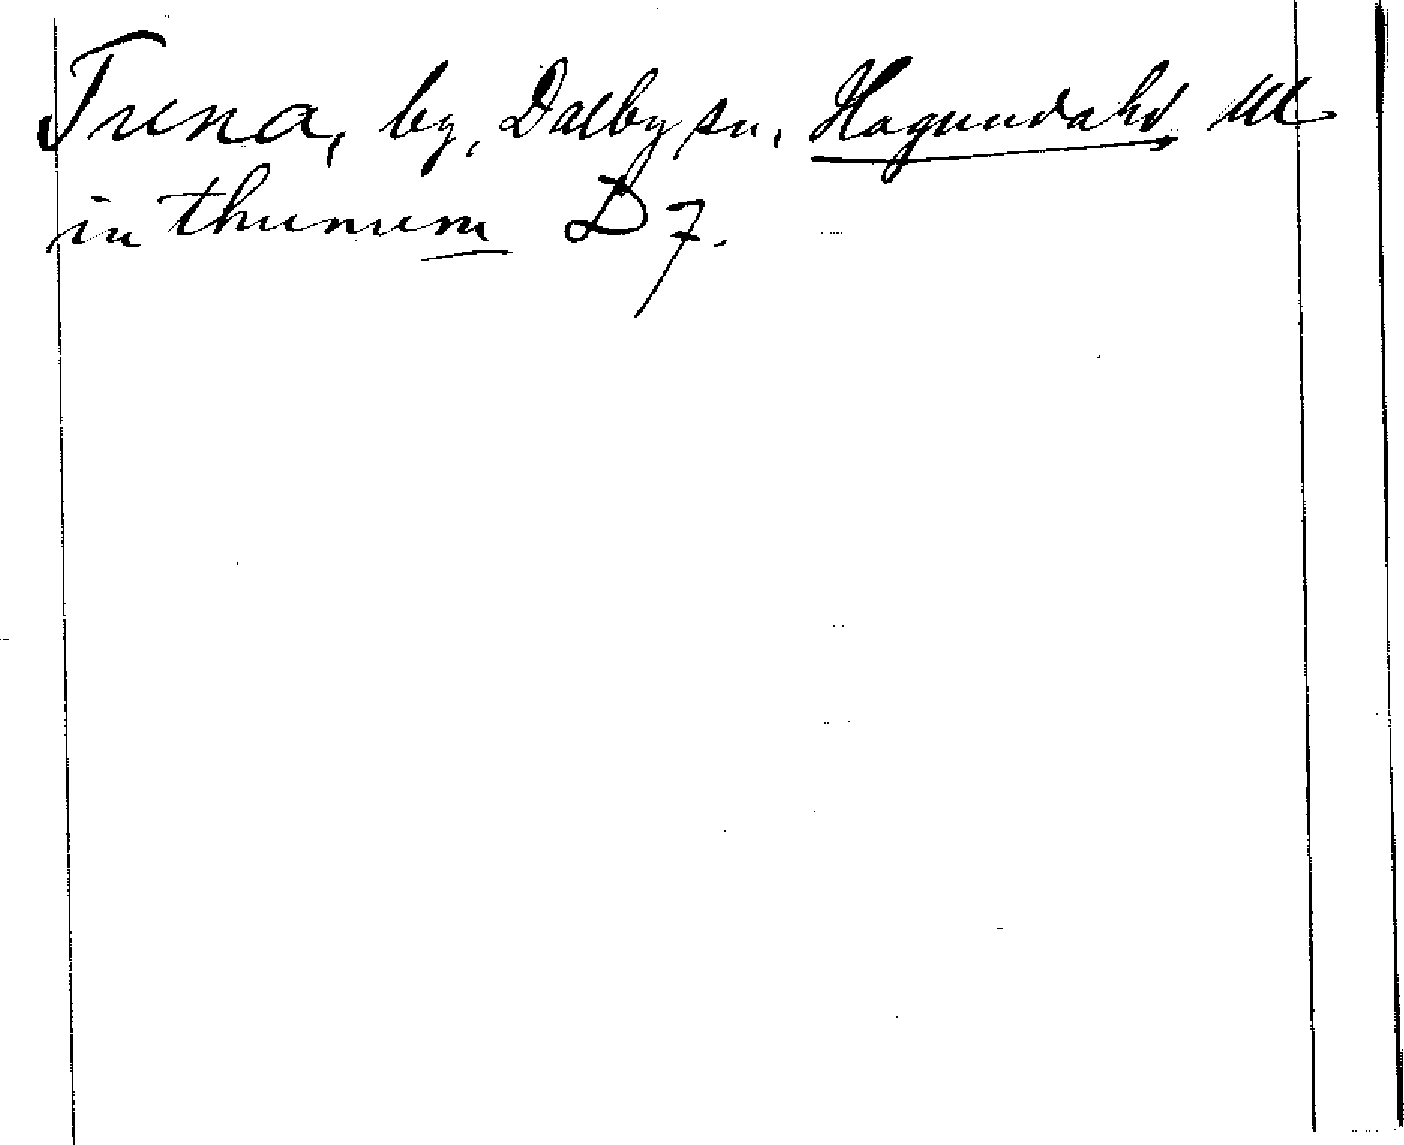 Tuna, by, Dalby sn, Hagunda hd Ul
in thunum D 7.